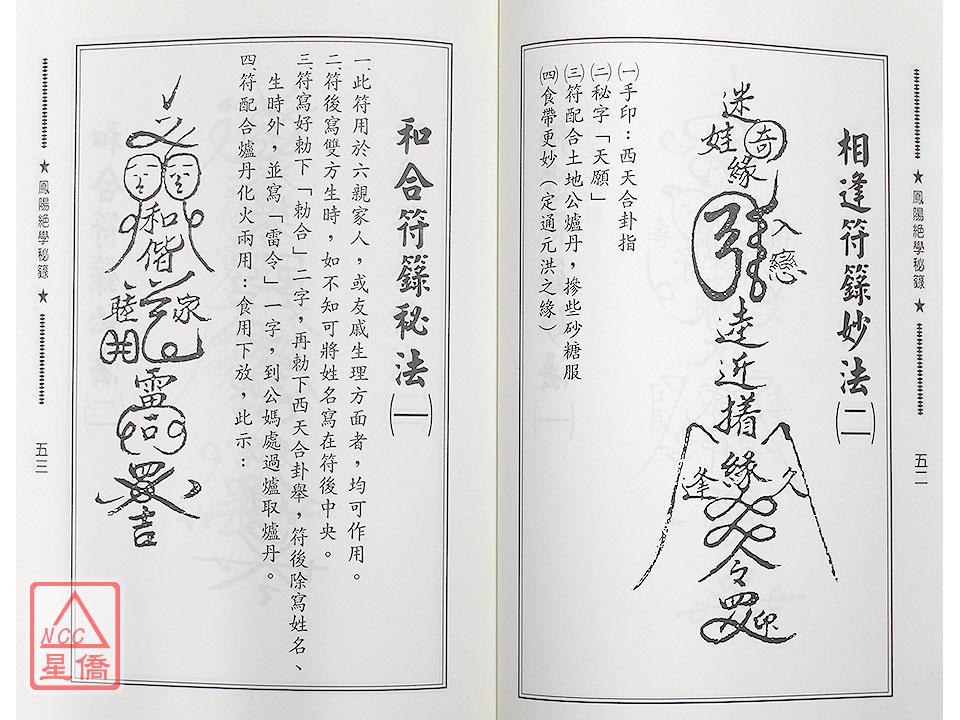 ★ 鳳陽絕學秘籙 ★
五二
相逢符籙妙法(二)
㈠手印：西天合卦指
㈡秘字「天願」
㈢符配合土地公爐丹，摻些砂糖服
㈣食帶更妙（定通元洪之緣）
迷
娃奇
緣
入戀
逵
近
着
緣
逢久
令
和合符籙秘法(一)
一、此符用於六親家人，或友戚生理方面者，均可作用。
二、符後寫雙方生時，如不知可將姓名寫在符後中央。
三、符寫好勅下「勅合」二字，再勅下西天合卦舉，符後除寫姓名、
生時外，並寫「雷令」一字，到公媽處過爐取爐丹。
四、符配合爐丹化火兩用：食用下放，此示：
和
偕
睦家
雷
★ 鳳陽絕學秘籙 ★
五三
NCC
星僑